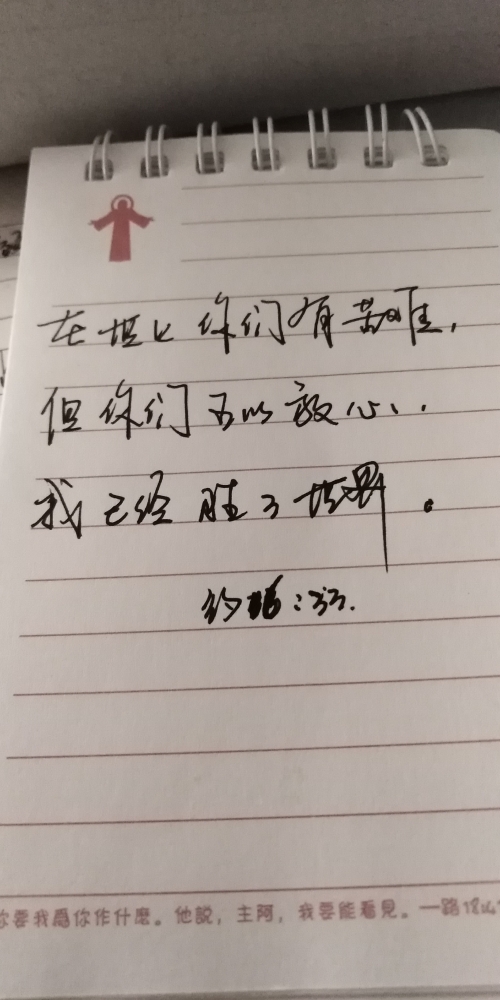 在世上你们有苦难,
但你们可以放心..
我已经胜了世界。
约16:33.
你要我為你作什麼。他說，主阿，我要能看見。一路18:41